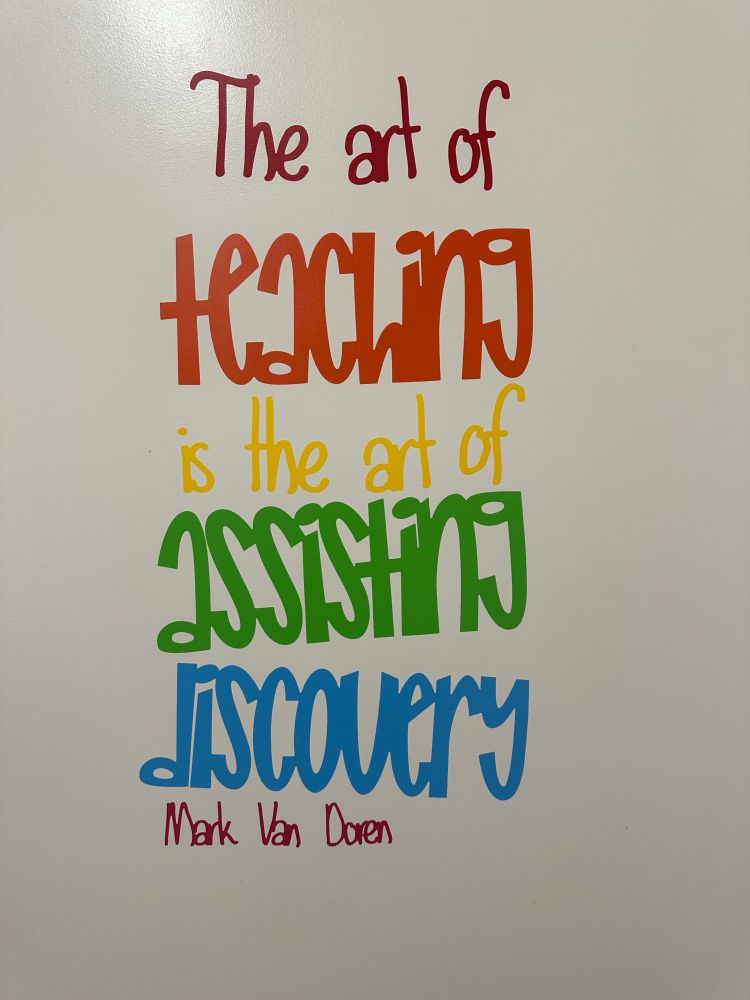 The art of
teaching
is the art of
assisting
discovery
Mark Van Doren